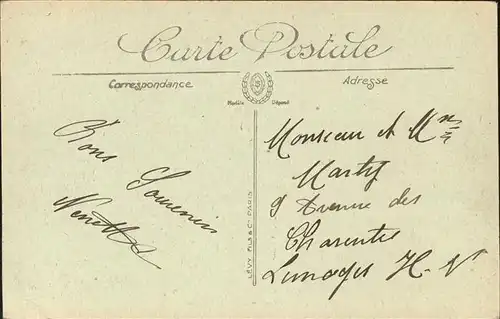 Carte Postale
Correspondance
Adresse
Modèle Déposé
Bons
Souvenirs
Monsieur et Mme
Marty
9 Avenue des
Charentes
Limoges H-V
LÉVY FILS & Cie PARIS